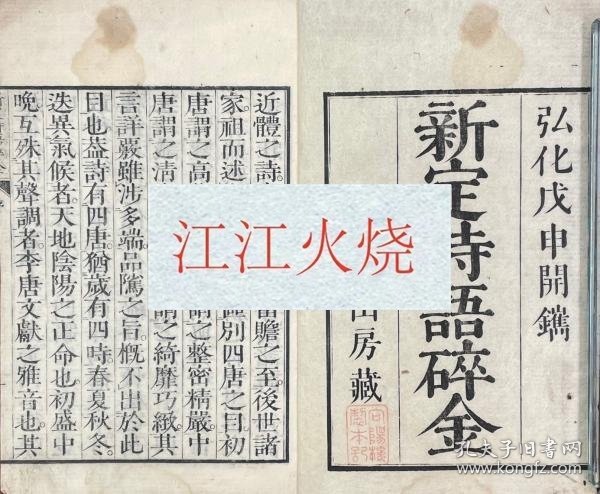 弘化戊申開鐫
新定詩語碎金
山房藏
近體之詩
富贍之至後世諸
家祖而述
區別四唐之目初
唐謂之高
謂之整密精嚴中
唐謂之清
謂之綺靡巧緻其
言詳覈雖涉多端品隲之旨慨不出於此
目也蓋詩有四唐猶歲有四時春夏秋冬
迭異氣候者天地陰陽之正命也初盛中
晚互殊其聲調者李唐文獻之雅音也其
江江火烧
孔夫子旧书网
www.kongfz.com